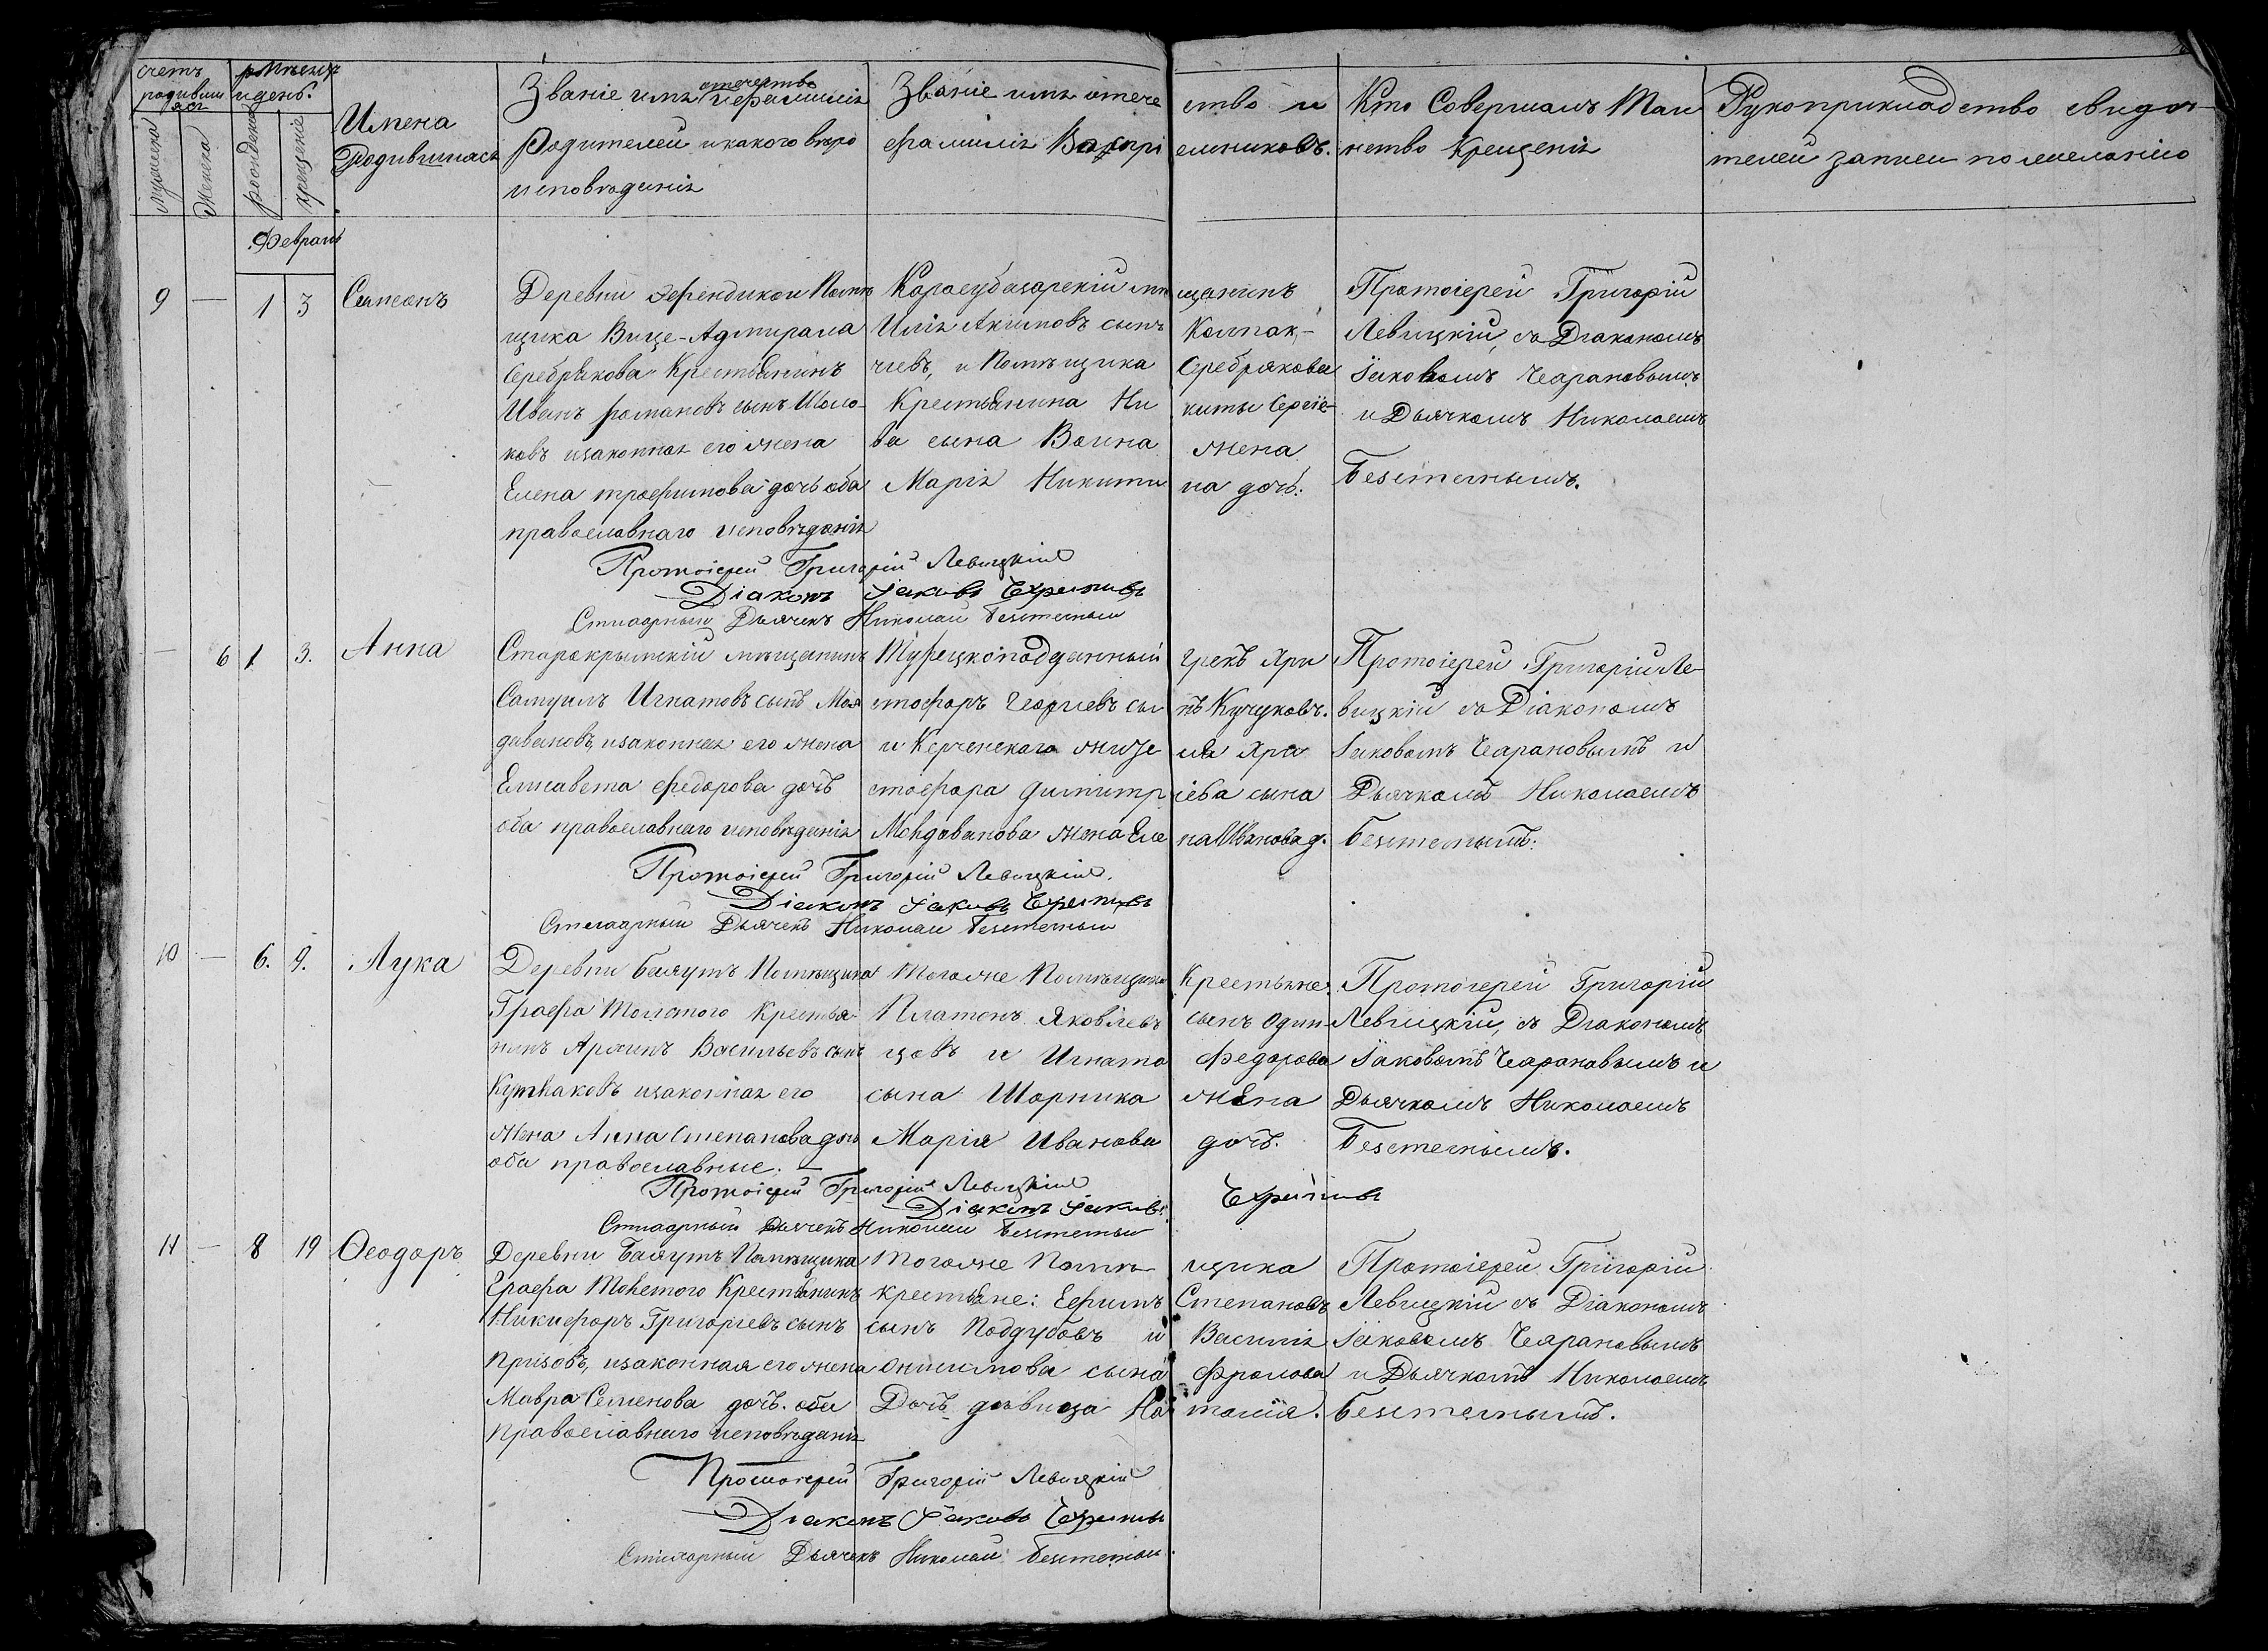 счетъ родившихся
мѣсяцъ и день.
мужеска
женска
рожденіе
крещеніе
Имена
Родившихся
Званіе имя отечество и фамилія
Родителей и какого вѣро
исповѣданія
Званіе имя отече ство и
фамилія Воспрі емниковъ.
Кто Совершалъ Таи
нство Крещенія
Рукоприкладство свиде
телей записи по желанію
Февраль
9 — 1 3 Симеонъ
Деревни Эфендикои Помѣ
щика Вице-Адмирала
Серебрякова Крестьянинъ
Иванъ Романовъ сынъ
ковъ изаконная его жена
Елена трофимова дочь оба
православнаго исповѣданія
Карасубазарскій мѣ щанинъ
Илія Акимовъ сынъ Колпак-
чіевъ, и Помѣщика Серебрякова
Крестьянина Ни киты Сергіе-
ва сына Воина жена
Марія Никити на дочь.
Протоіерей Григорій
Левицкій, съ Діакономъ
Іаковомъ Чарановымъ
и Дьячкомъ Николаемъ
Безстетнымъ.
Протоіерей Григорій Левицкій
Діаконъ Іаковъ
Стихарный Дьячекъ Николай
— 6 1 3. Анна
Старокрымскій мѣщанинъ
Самуилъ Игнатовъ сынъ Мон
довановъ, изаконная его жена
Елисавета Федорова дочь
оба православнаго исповѣданія
Турецкоподданный грекъ Хри
стофоръ Георгіевъ сы нъ Кучуковъ.
и Керченскаго жите ля Хри
стофора Димитр іева сына
Мондованова жена Еле на Иванова д.
Протоіерей Григорій Ле-
вицкій съ Діакономъ
Іаковомъ Чарановымъ и
Дьячкомъ Николаемъ
Безстетнымъ.
Протоіерей Григорій Левицкій.
Діаконъ Іаковъ
Стихарный Дьячекъ Николай
10 — 6. 9. Лука
Деревни Баяутъ Помѣщика
Графа Толстого Крестья-
нинъ Васильевъ сынъ
изаконная его
жена Анна Степанова дочь
оба православные. —
Тогоже Помѣщика Крестьяне:
Платонъ Яковлевъ сынъ Один-
цовъ и Игната Федорова
сына Шорника жена
Марія Иванова дочь.
Протоіерей Григорій
Левицкій, съ Діакономъ
Іаковомъ Чарановымъ и
Дьячкомъ Николаемъ
Безстетнымъ.
Протоіерей Григорій Левицкій
Діаконъ Іаковъ
Стихарный Дьячекъ Николай
11 — 8 19 Ѳеодоръ
Деревни Баяутъ Помѣщика
Графа Толстого Крестьянинъ
Никифоръ Григорьевъ сынъ
Призовъ, изаконная его жена
Мавра Семенова дочь. оба
Православнаго исповѣданія
Тогоже Помѣ щика
крестьяне: Ефимъ Степановъ
сынъ Поддубовъ и Василія
онисимова сына Фролова
Дочь девица На талія.
Протоіерей Григорій
Левицкій съ Діакономъ
Іаковомъ Чарановымъ
и Дьячкомъ Николаемъ
Безстетнымъ.
Протоіерей Григорій Левицкій
Діаконъ Іаковъ
Стихарный Дьячекъ Николай